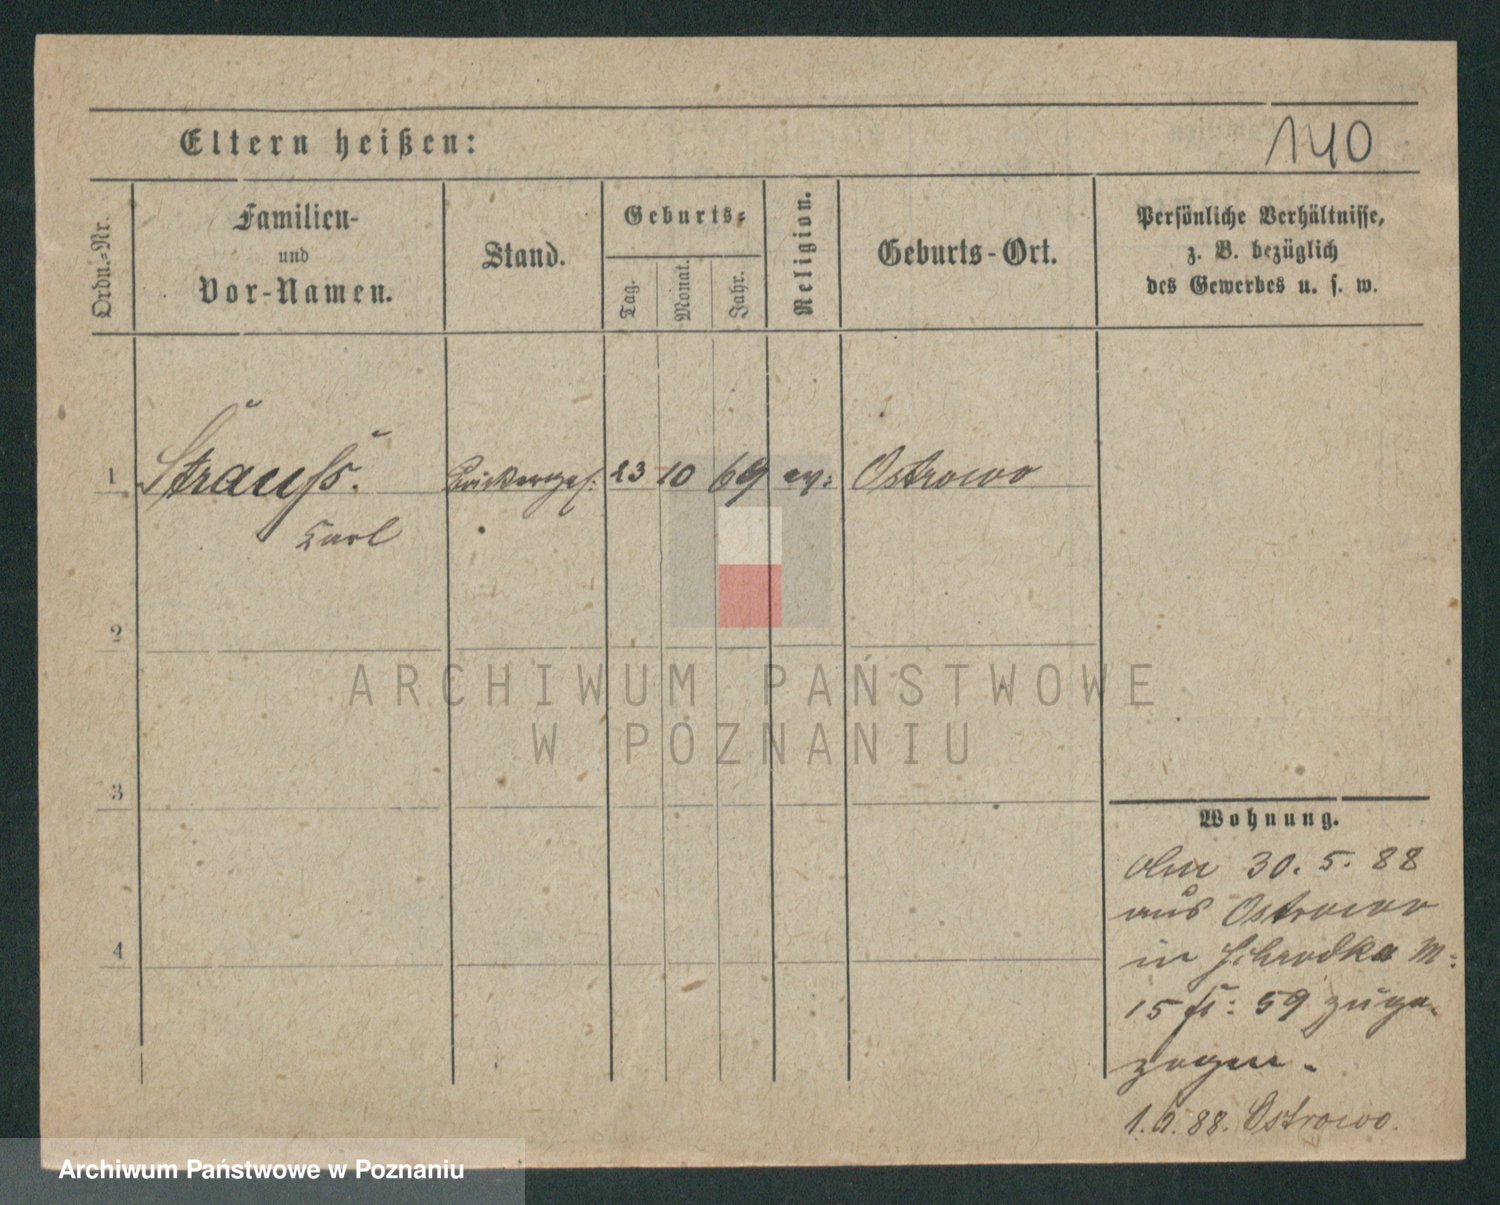 Eltern heißen:
140
Ordn.-Nr.
Familien-
und
Vor-Namen.
Stand.
Geburts-
Tag.
Monat.
Jahr.
Religion.
Geburts-Ort.
Persönliche Verhältnisse,
z. B. bezüglich
des Gewerbes u. s. w.
1 Strauss. 23 10 69 ev: Ostrowo
Karl
2
3
4
Wohnung.
30. 5. 88
aus Ostrowo
in Schrodka M:
15 59 zuge-
zogen.
1.6.88. Ostrowo.
ARCHIWUM PAŃSTWOWE
W POZNANIU
Archiwum Państwowe w Poznaniu